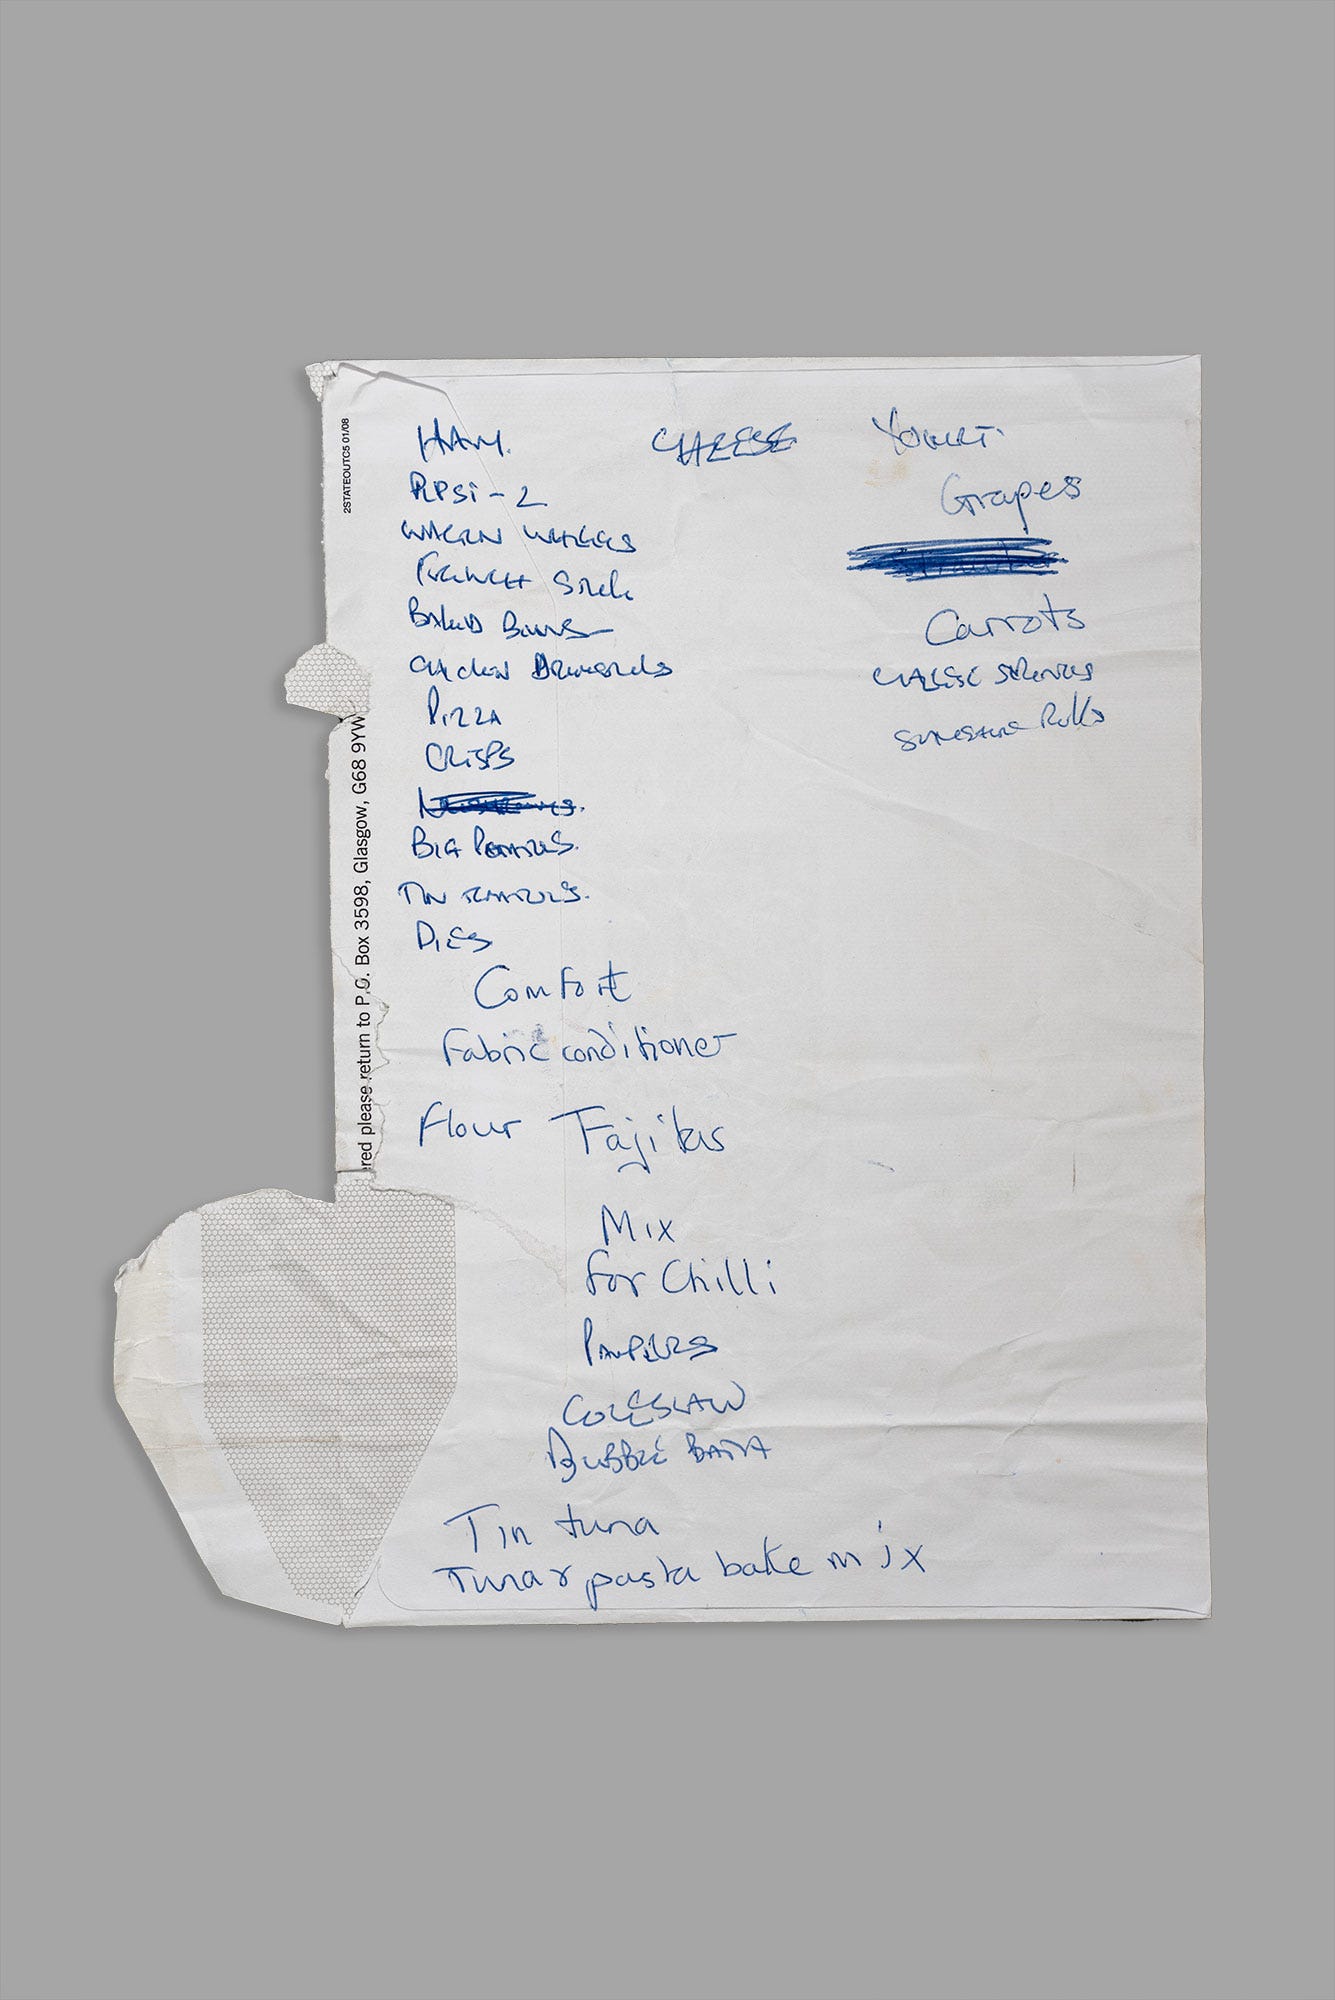 2STATEOUTC5 01/08
HAM.
CHEESE
YOGURT.
PEPSI - 2
Grapes
WAGON WHEELS
FRENCH STICK
BAKED BEANS
Carrots
CHICKEN DRUMSTICKS
CHEESE STRINGS
PIZZA
Rolls
CRISPS
BIG POTATOES.
TIN TOMATOES.
PIES
Comfort
Fabric conditioner
Flour Fajitas
Mix
for Chilli
PAMPERS
COLESLAW
BUBBLE BATH
Tin tuna
Tuna r pasta bake mix
ered please return to P.O. Box 3598, Glasgow, G68 9YW